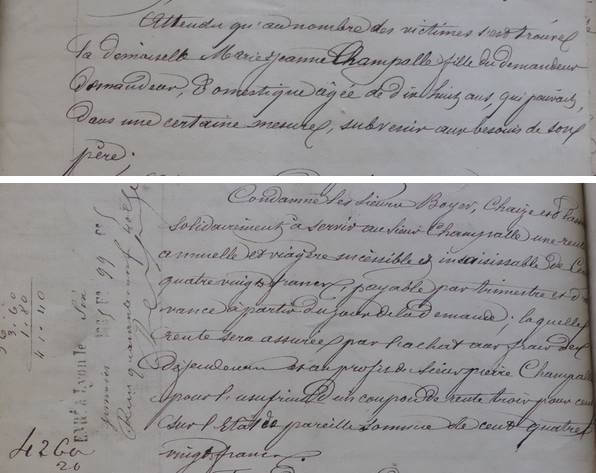 Attendu qu'au nombre des victimes s'est trouvée
la demoiselle Marie Jeanne Champalle fille du demandeur
demandeur, Domestique âgée de dix huit ans, qui pouvait,
dans une certaine mesure, subvenir aux besoins de son
père;
Condamne les sieurs Boyer, Chaize et
solidairement à servir au sieur Champalle une rente
annuelle et viagère incessible et insaisissable de Cent
quatre vingts francs, payable par trimestre et d'a
vance à partir du jour de la demande; laquelle
rente sera assurée par l'achat aux frais des
défendeurs et au profit du sieur pierre Champalle
pour l'usufruit d'un coupon de rente trois pour cent
sur l'Etat de pareille somme de cent quatre
vingts francs.
3.60
1.80
41.40
Enr.é à Lyon le
4260
20